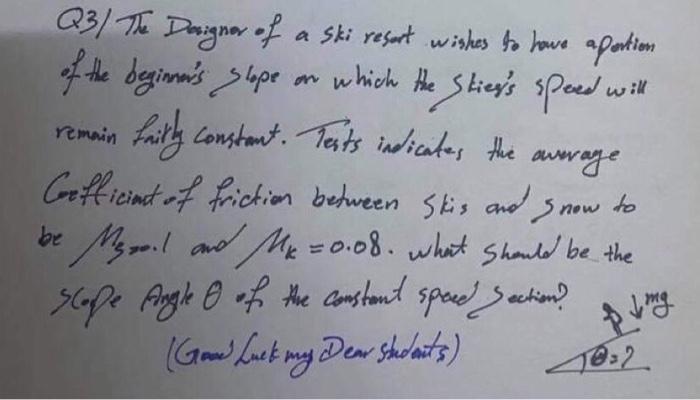 Q3/ The Designer of a ski resort wishes to have a portion
of the beginner's slope on which the skier's speed will
remain fairly constant. Tests indicates the average
Coefficient of friction between skis and snow to
be Ms=0.1 and Mk = 0.08. what should be the
slope Angle θ of the constant speed section?
mg
(Good Luck my Dear students)
θ=?